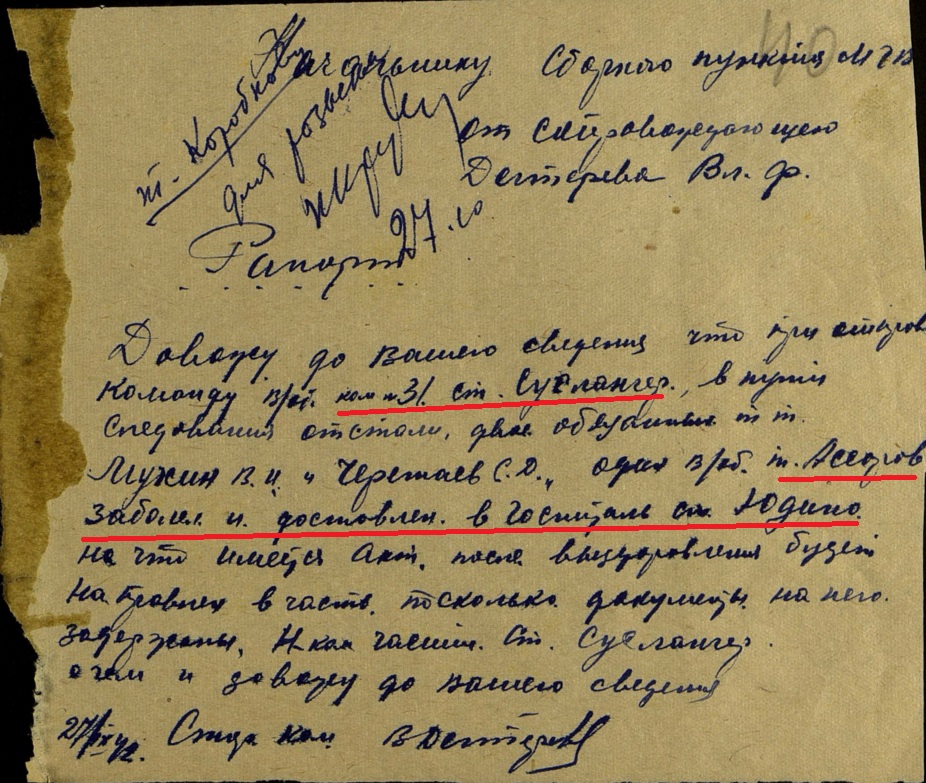 40
т. Коробкову
для розыска
27.10
Начальнику Сборного пункта МГВ
от сопровождающего
Дегтерева Вл. Ф.
Рапорт
Довожу до вашего сведения что при отправ
команду в/об. ком н 31 ст. Суслангер, в пути
следования отстали, двое обязанных т т.
Мужин В. И. и Черетаев С. Д., один в/об. т. Ассоров
заболел и. доставлен. в госпиталь ст. Юдино.
на что имеется акт, после выздоровления будет
направлен в часть, посколько документы на него.
задержаны, Н-ком части. Ст. Суслангер.
о чем и довожу до вашего сведения
27/IX 42. ком. В Дегтерев